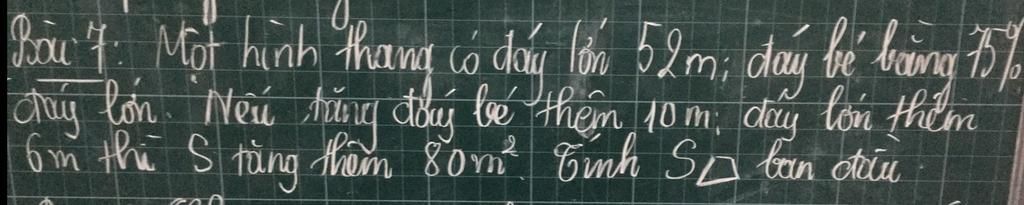 Bài 7: Một hình thang có đáy lớn 52m; đáy bé bằng 75%
đáy lớn. Nếu tăng đáy bé thêm 10m; đáy lớn thêm
6m thì S tăng thêm 80m². Tính S⏢ ban đầu